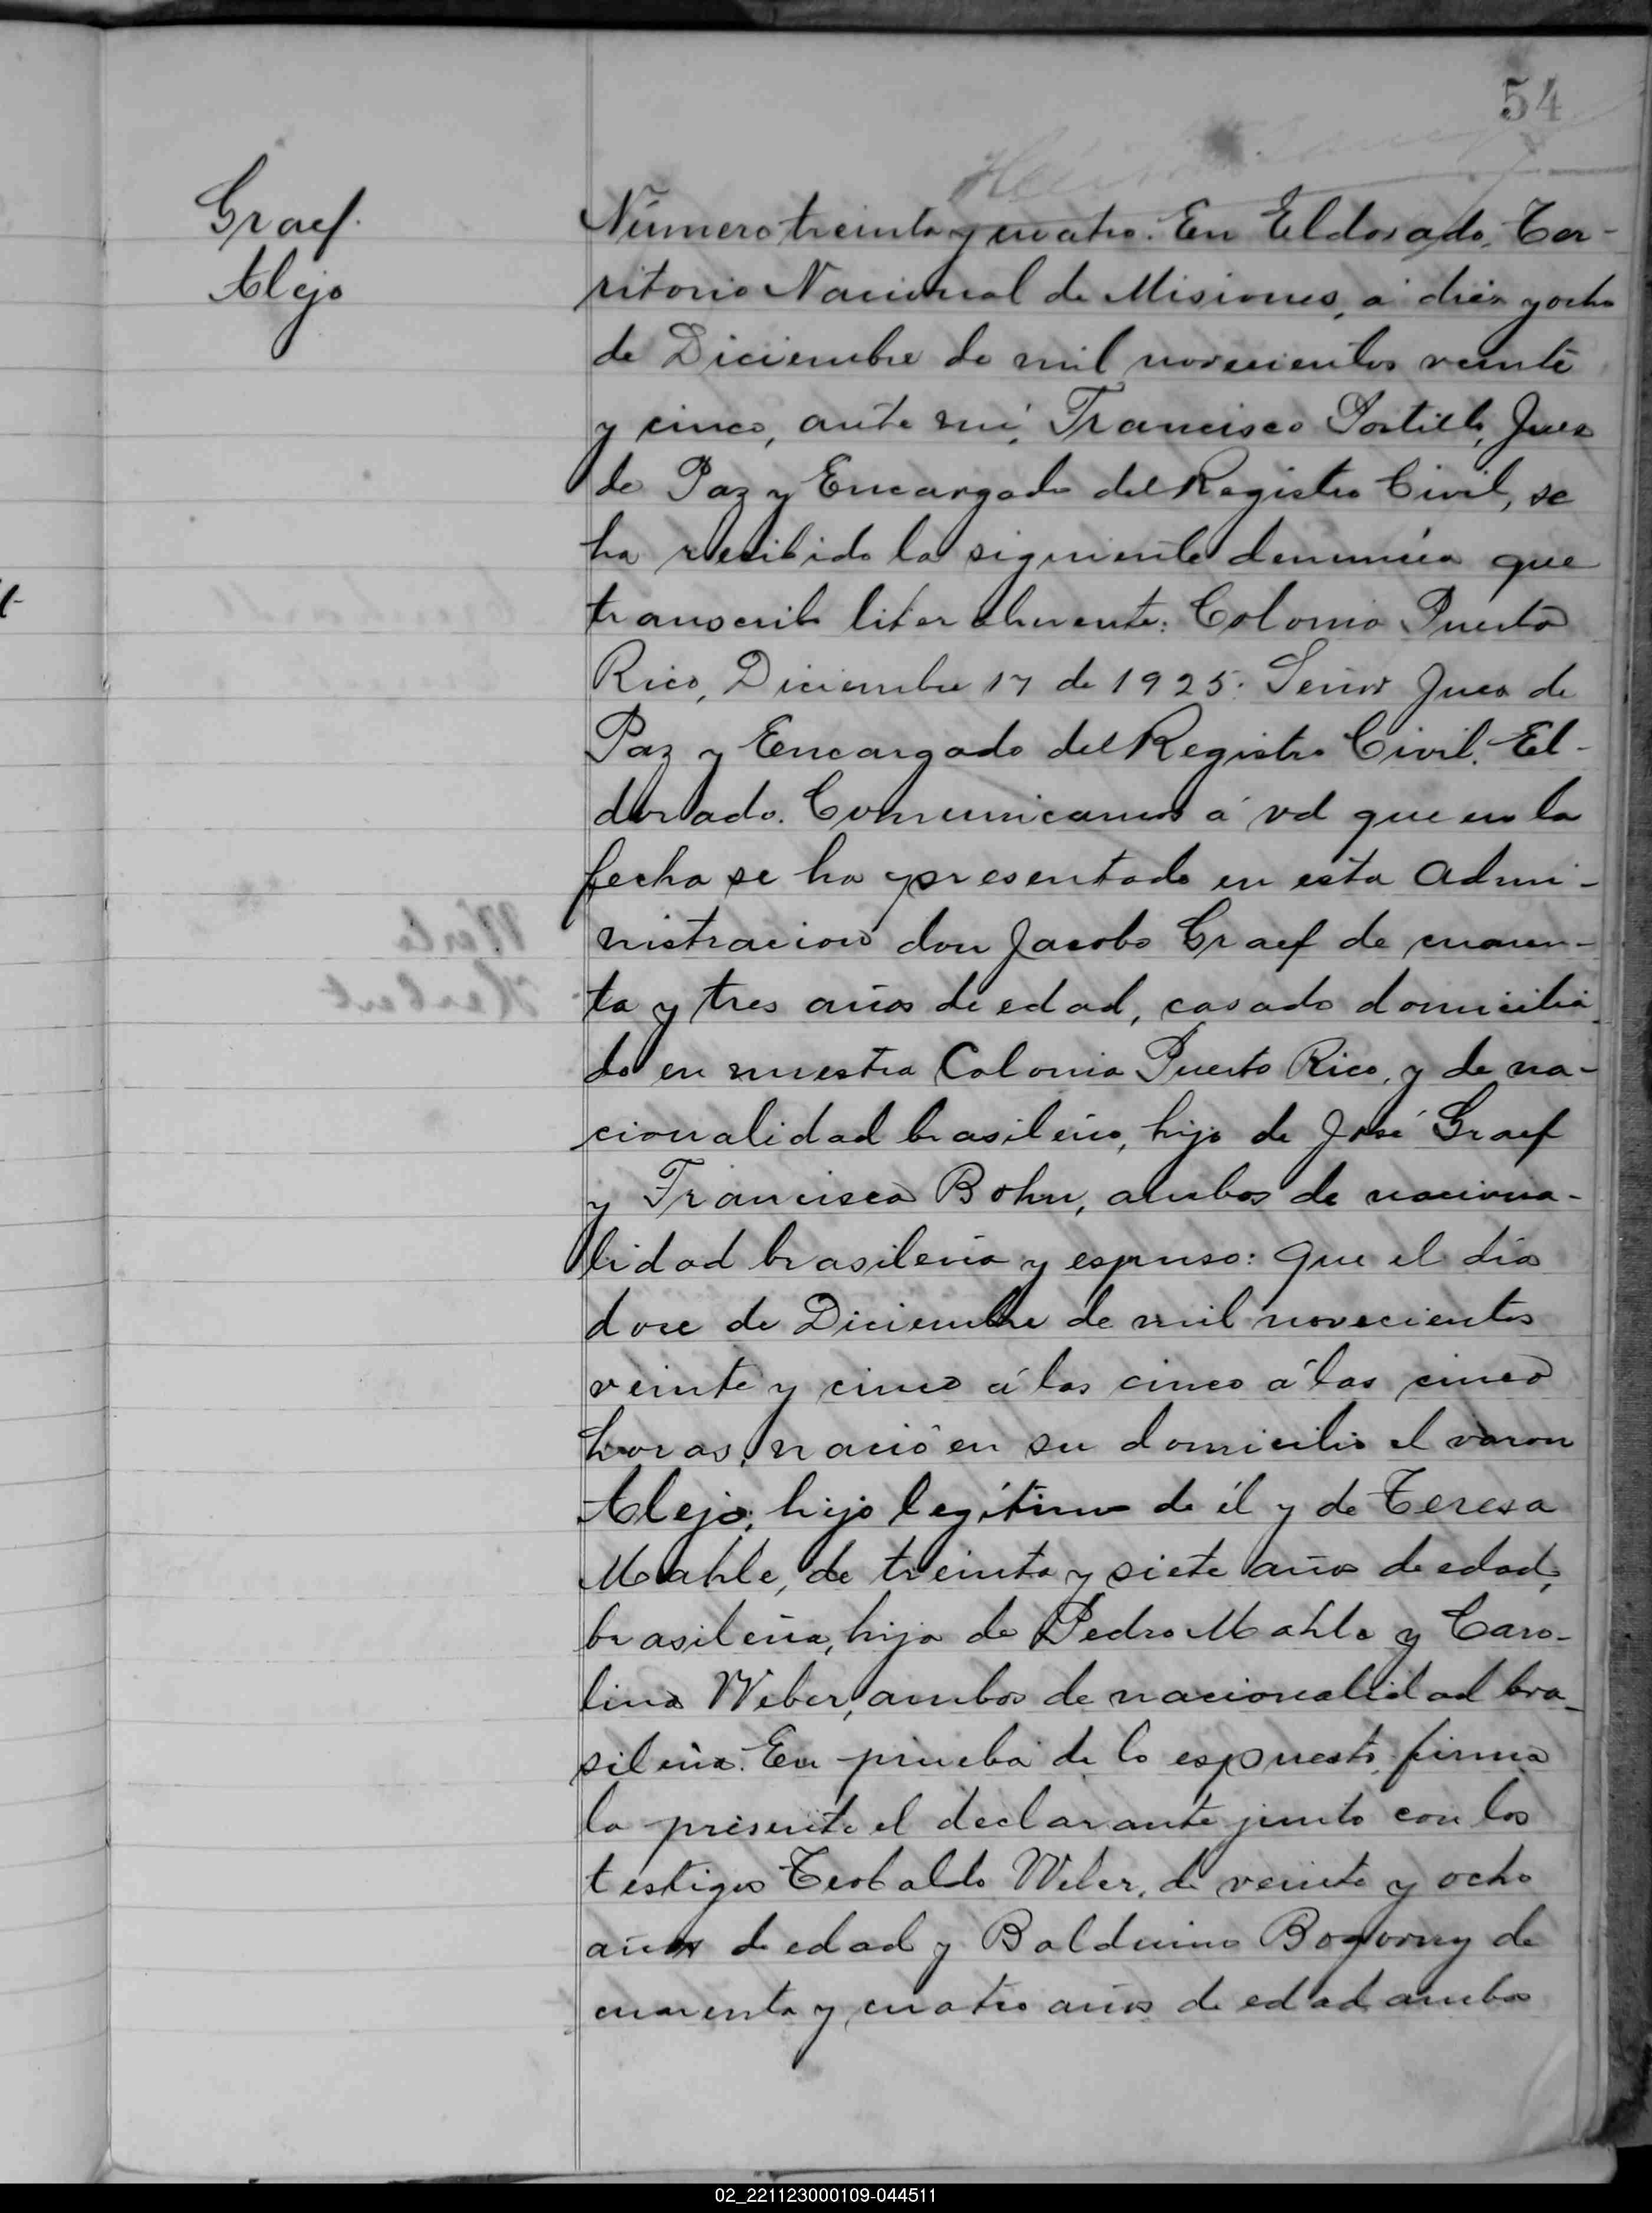 54
Graef.
Alejo
Número treinta y cuatro. En Eldorado, Ter-
ritorio Nacional de Misiones, á diez y ocho
de Diciembre de mil novecientos veinte
y cinco, ante mí, Francisco Portillo, Juez
de Paz y Encargado del Registro Civil, se
ha recibido la siguiente denuncia que
transcribo literalmente: Colonia Puerto
Rico, Diciembre 17 de 1925. Señor Juez de
Paz y Encargado del Registro Civil. El-
dorado. Comunicamos á vd que en la
fecha se ha presentado en esta Admi-
nistracion don Jacobo Graef de cuaren-
ta y tres años de edad, casado domicilia-
do en nuestra Colonia Puerto Rico, y de na-
cionalidad brasileño, hijo de José Graef
y Francisca Bohn, ambos de naciona-
lidad brasileña y espuso: que el dia
doce de Diciembre de mil novecientos
veinte y cinco á las cinco á las cinco
horas, nació en su domicilio el varon
Alejo, hijo legítimo de él y de Teresa
Mahle, de treinta y siete años de edad,
brasileña, hija de Pedro Mahle y Caro-
lina Weber, ambos de nacionalidad bra-
sileña. En prueba de lo espuesto, firma
la presente el declarante junto con los
testigos Teobaldo Weber, de veinte y ocho
años de edad y Balduino Bogorny de
cuarenta y cuatro años de edad ambos
02_221123000109-044511